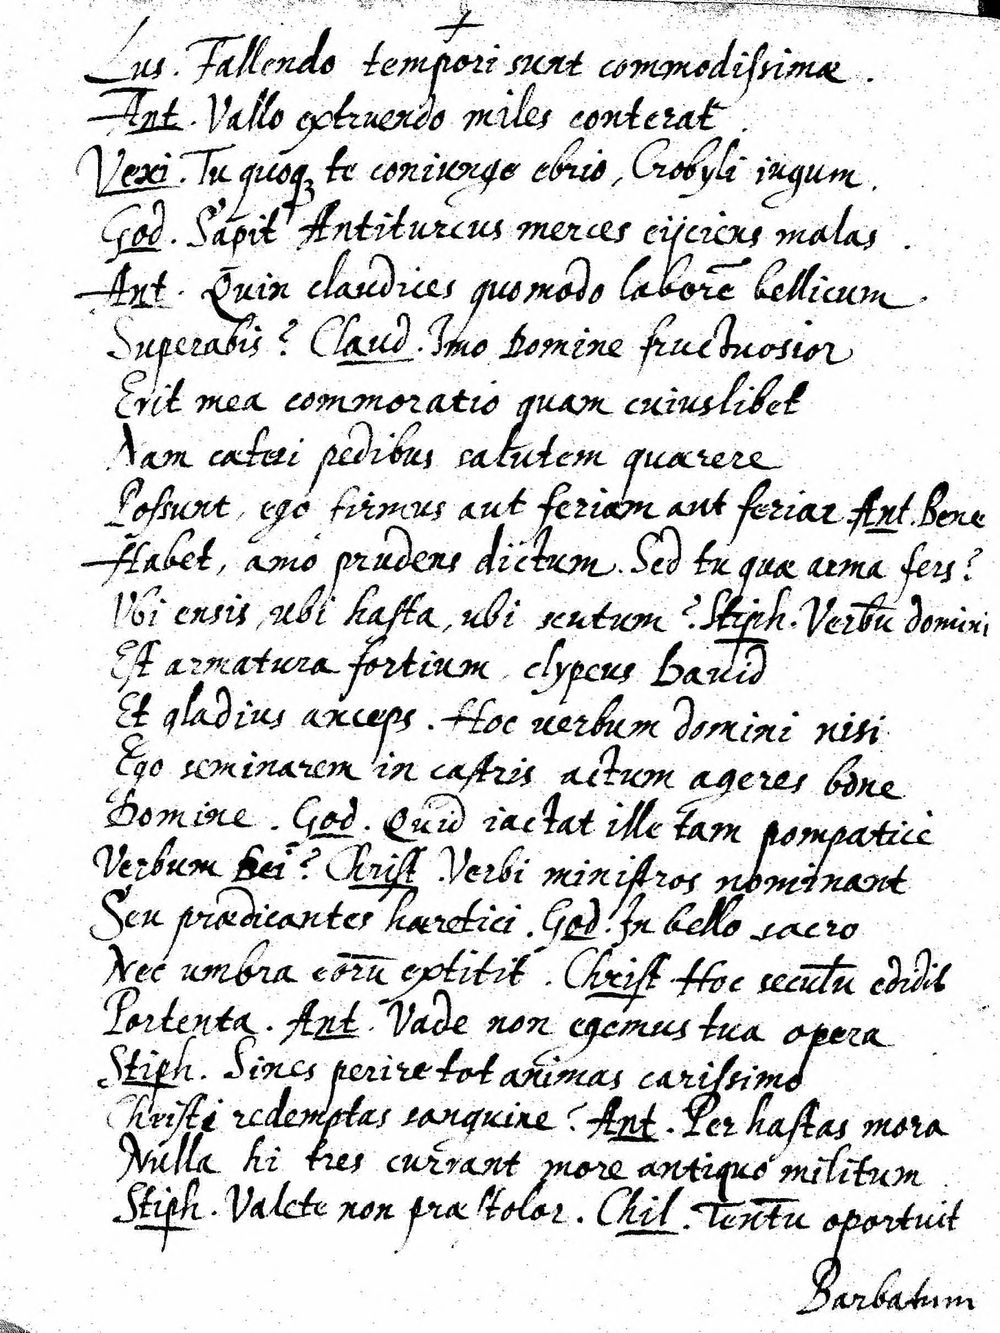 Lus. Fallendo tempori sunt commodissimæ.
Ant. Vallo extruendo miles conterat.
Vexi. Tu quoq3 te coniunge ebrio, Crobyli iugum.
God. Sapit Antiturcus merces eijciens malas.
Ant. Quin claudices quomodo laborē bellicum
Superabis? Claud. Imo Domine fructuosior
Erit mea commoratio quam cuiuslibet
Nam cæteri pedibus salutem quærere
Possunt, ego firmus aut feriam aut feriar. Ant. Bene
Habet, amo prudens dictum. Sed tu quæ arma fers?
Vbi ensis, ubi hasta, ubi scutum? Stiph. Verbū domini
Est armatura fortium, clypeus Dauid
Et gladius anceps. Hoc uerbum domini nisi
Ego seminarem in castris actum ageres bone
Domine. God. Quid iactat ille tam pompaticè
Verbum Dei? Christ. Verbi ministros nominant
Seu prædicantes hæretici. God. In bello sacro
Nec umbra eorū extitit. Christ Hoc seculū edidit
Portenta. Ant. Vade non egemus tua opera
Stiph. Sines perire tot animas carissimo
Christi redemptas sanguine? Ant. Per hastas mora
Nulla hi tres currant more antiquo militum
Stiph. Valete non præstolor. Chil. Tentū oportuit
Barbatum